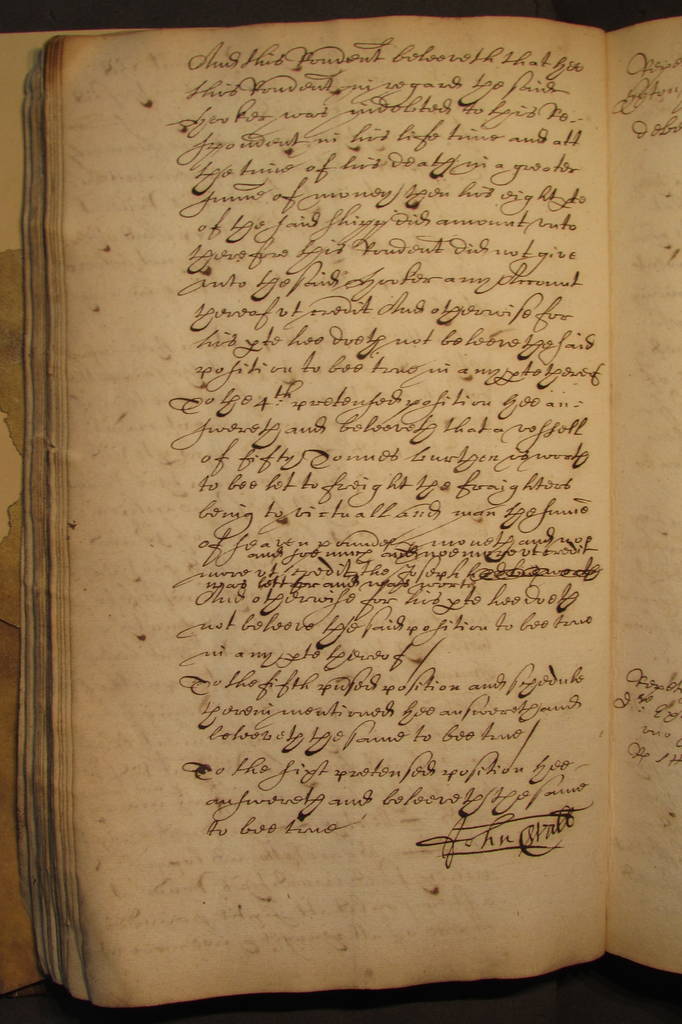 And this Rondent beleeveth that hee
this Rondent in regard the said
Hooker was indebted to this Re-
spondent in his life time and att
the time of his death in a greater
summe of money then his eight pte
of the said shipp did amount vnto
therefore this Rondent did not give
vnto the said Hooker any Account
thereof vt credit And otherwise for
his pte hee doeth not beleeve the said
position to bee true in any pte thereof
To the 4th pretensed position hee an-
swereth and beleeveth that a vessell
of fifty Tonnes burthen is worth
to bee let to freight the fraighters
being to victuall and man the summe
of seaven pounds moneth and noe
and soe much and noe more vt credit
more vt credit the Joseph
was lett for and was worth
And otherwise for his pte hee doeth
not beleeve the said position to bee true
in any pte thereof /
To the fifth pnsed position and schedule
therein mentioned hee answereth and
beleeveth the same to bee true /
To the sixt pretensed position hee
answereth and beleeveth the same
to bee true
John
Repe
debe